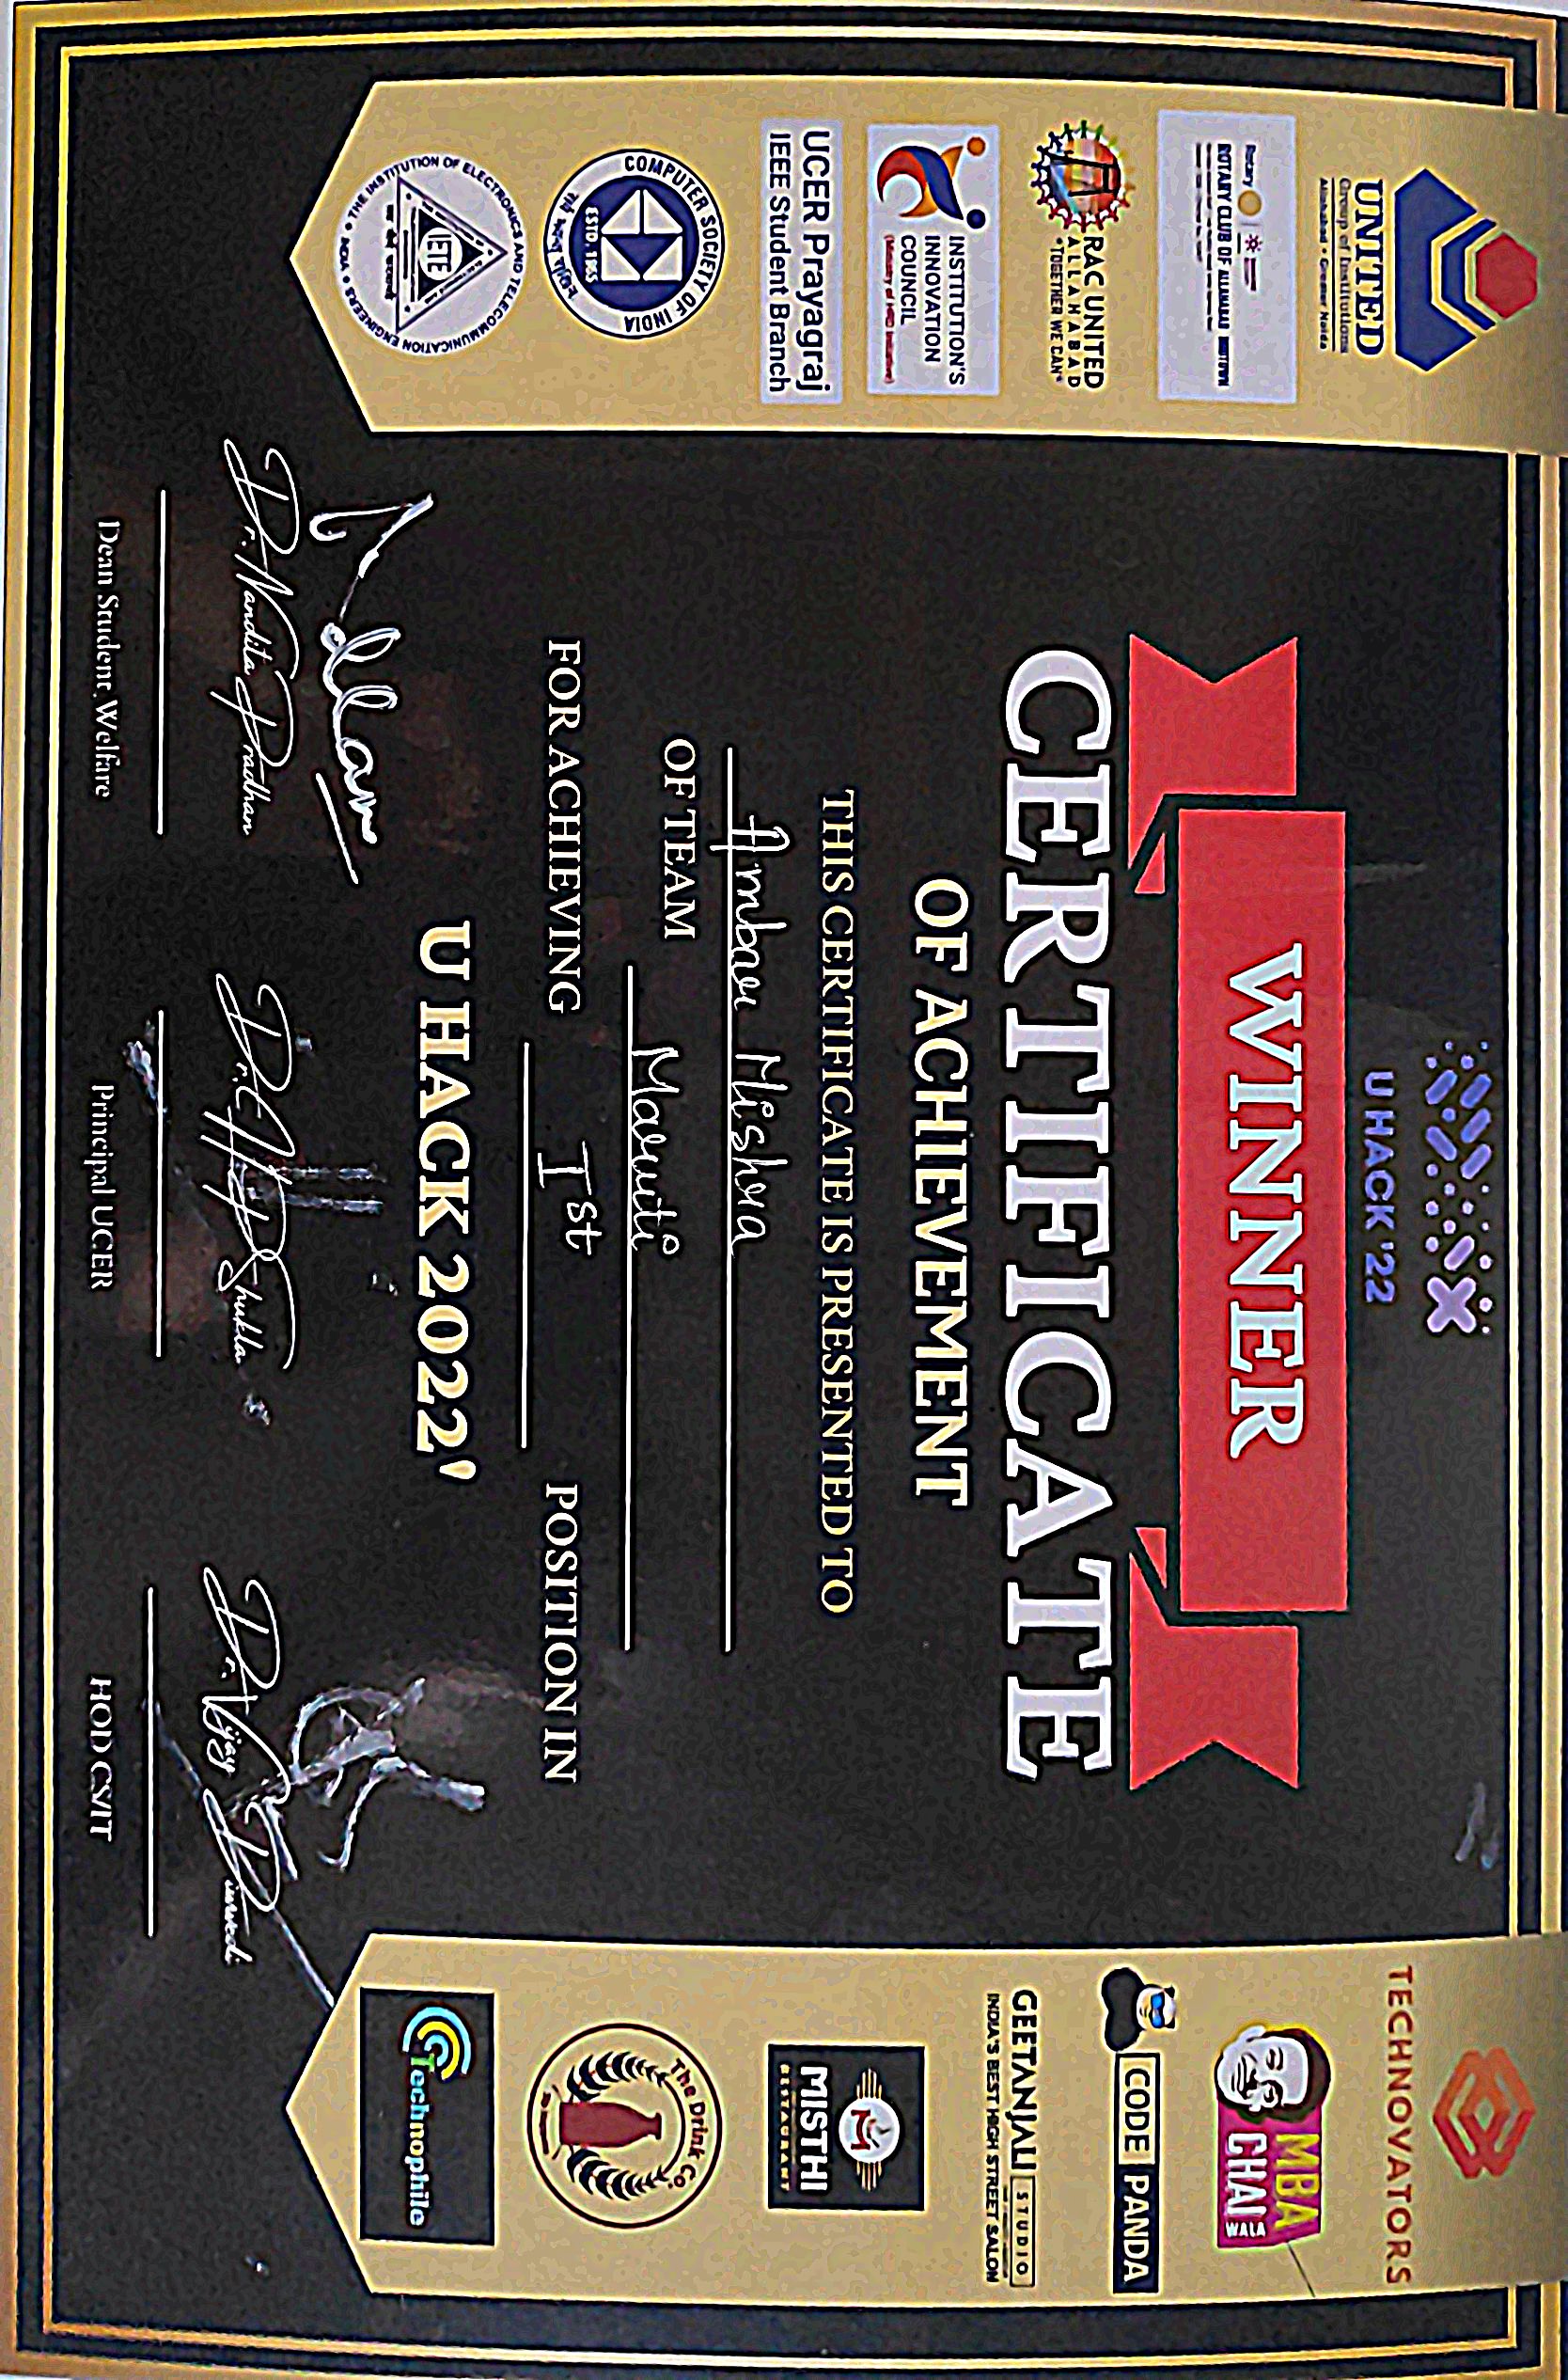 UNITED
Group of Institutions
Allahabad • Greater Noida
Rotary
ROTARY CLUB OF ALLAHABAD MIDTOWN
RAC UNITED
ALLAHABAD
"TOGETHER WE CAN"
INSTITUTION'S
INNOVATION
COUNCIL
(Ministry of HRD Initiative)
UCER Prayagraj
IEEE Student Branch
COMPUTER SOCIETY OF INDIA
ESTD. 1965
THE INSTITUTION OF ELECTRONICS AND TELECOMMUNICATION ENGINEERS • INDIA •
IETE
U HACK '22
WINNER
CERTIFICATE
OF ACHIEVEMENT
THIS CERTIFICATE IS PRESENTED TO
Ambar Mishra
OF TEAM Maruti
FOR ACHIEVING Ist POSITION IN
U HACK 2022'
Dr. Nandita Pradhan
Dean Student Welfare
Dr. H P Shukla
Principal UCER
Dr. Vijay Dwivedi
HOD CS/IT
TECHNOVATORS
MBA
CHAI
WALA
CODE PANDA
GEETANJALI STUDIO
INDIA'S BEST HIGH STREET SALON
MISTHI
RESTAURANT
The Drink Co.
Technophile